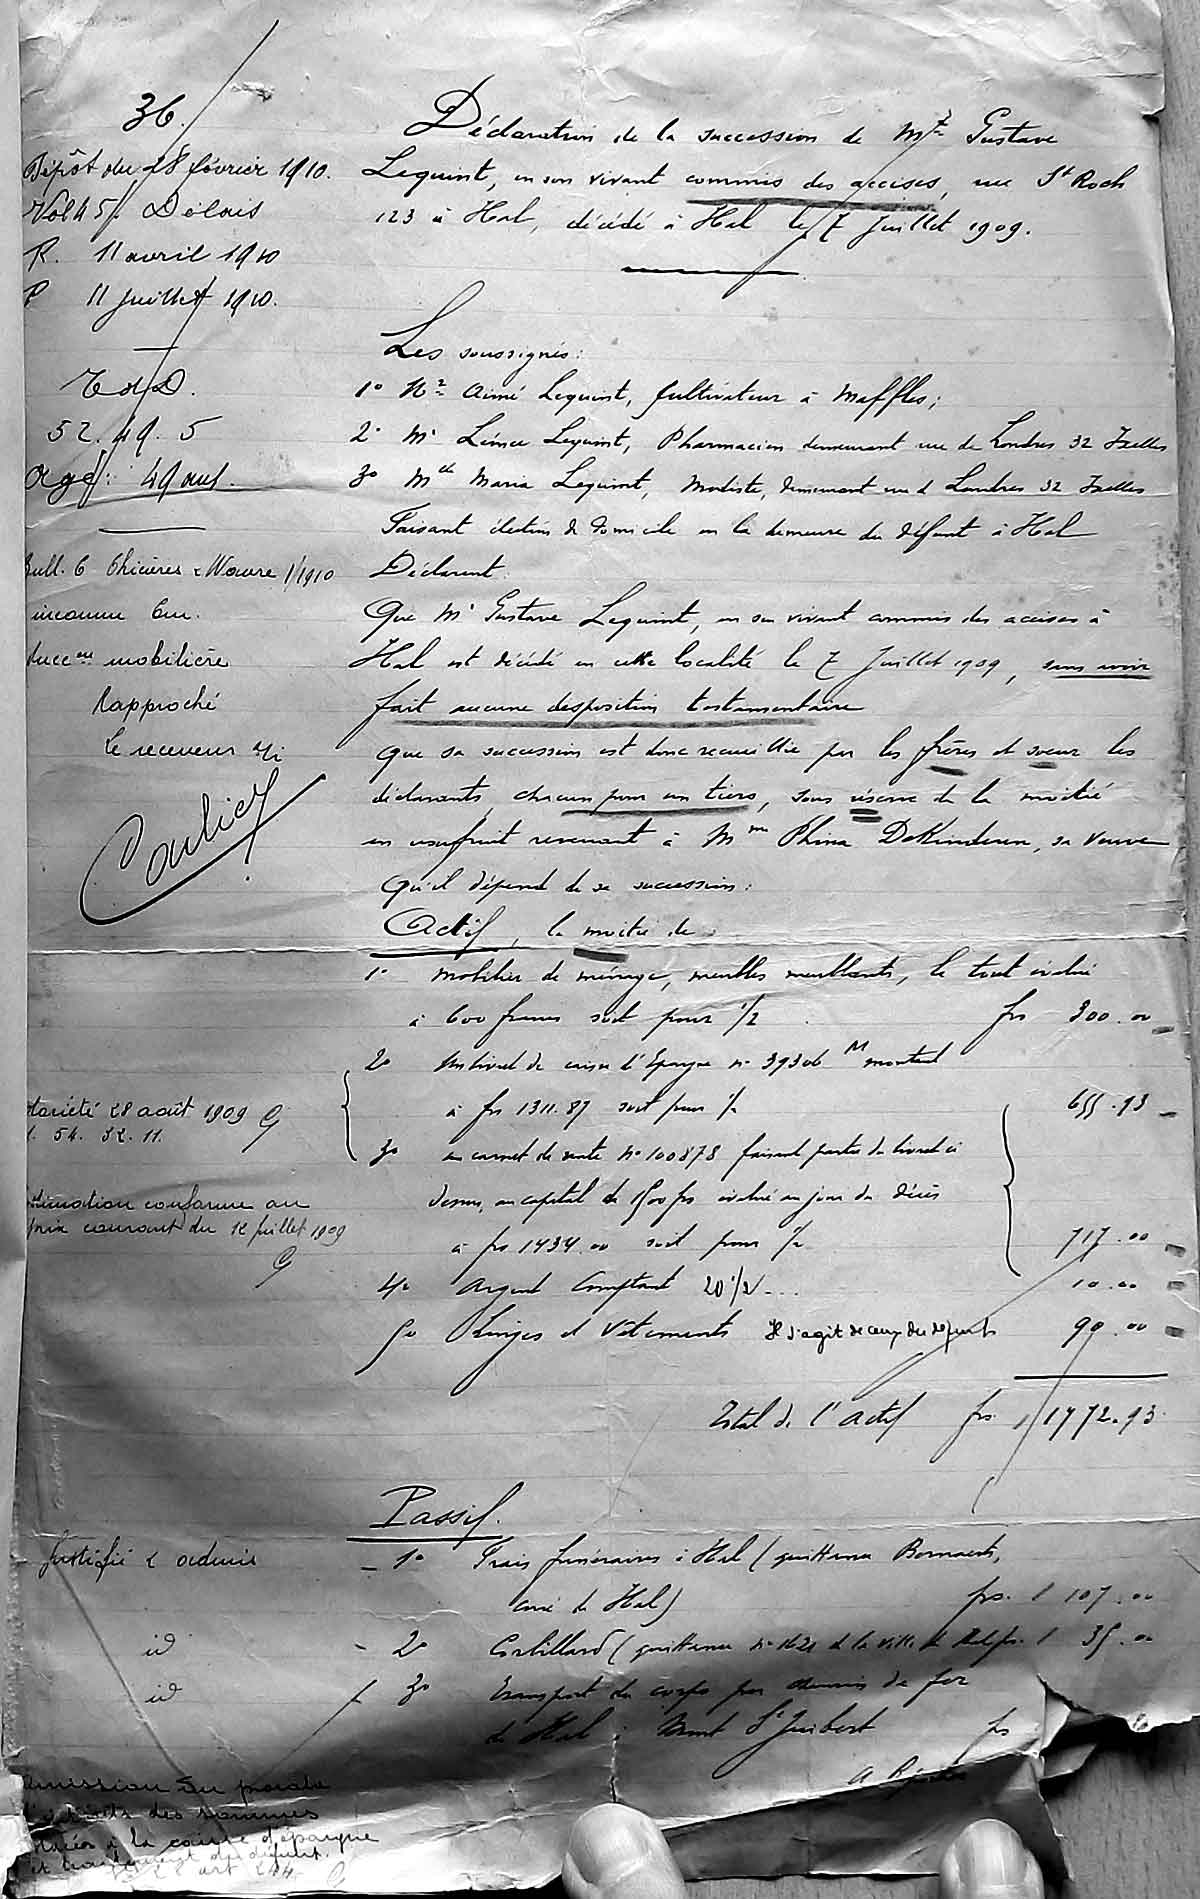 36.
Dépôt du 28 février 1910.
Vol 45/. Délais
R. 11 avril 1910
P 11 Juillet 1910.
T d D.
52. 49. 5
age : 49 ans.
Bull. 6 Chièvres & Wavre 1/1910
inconnu Enr.
Succ.on mobilière
Rapproché
Le receveur
Déclaration de la succession de Mr Gustave
Lequint, en son vivant commis des accises, rue St Roch
123 à Hal, décédé à Hal le 7 Juillet 1909.
Les soussignés:
1° Mr Aimé Lequint, Cultivateur à Maffles;
2° Mr Léonce Lequint, Pharmacien demeurant rue de Londres 32 Ixelles
3° Mlle Maria Lequint, Modiste, demeurant rue de Londres 32 Ixelles
Faisant élection de domicile en la demeure du défunt à Hal
Déclarent
Que Mr Gustave Lequint, en son vivant commis des accises à
Hal est décédé en cette localité le 7 Juillet 1909, sans avoir
fait aucune disposition testamentaire
Que sa succession est donc recueillie par les frères et soeur les
déclarants, chacun pour un tiers, sous réserve de la moitié
en usufruit revenant à Mme Phina DeKinderen, sa veuve
Qu'il dépend de sa succession:
Actif, la moitié de :
1° Mobilier de ménage, meubles meublants, le tout évalué
à 600 francs soit pour 1/2 frs 300.00
2° Un livret de caisse d'Epargne n° 39306 montant
à frs 1311.87 soit pour 1/2 655.93
3° un carnet de rente N° 100878 faisant partie du livret ci
dessus, au capital de 1500 frs évalué au jour du décès
à frs 1434.00 soit pour 1/2 717.00
28 août 1909
1. 54. 32. 11.
Estimation conforme au
prix courant du 12 Juillet 1909
4° Argent Comptant 20 1/2 ... 10.00
5° Linges et Vêtements Il s'agit de ceux du défunt 90.00
Total de l'actif frs 1772.93
Passif.
Justifié & admis
1° Frais funéraires à Hal (quittance Bornaerts,
curé de Hal) frs. 107.00
id
2° Corbillard (quittance n° 1621 de la ville de Hal frs. 35.00
id
3° transport du corps par chemin de fer
de Hal à Mont St Guibert frs
A Reporter
Omission du prorata
d'intérêts des sommes
placées à la caisse d'épargne
et traitement du défunt.
art 244